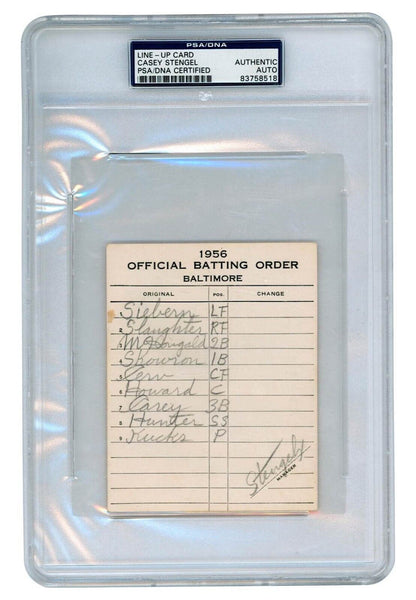 PSA/DNA
LINE-UP CARD
CASEY STENGEL AUTHENTIC
PSA/DNA CERTIFIED AUTO
83758518
1956
OFFICIAL BATTING ORDER
BALTIMORE
ORIGINAL POS. CHANGE
1 Siebern LF
2 Slaughter RF
3 McDougald 2B
4 Skowron 1B
5 Cerv CF
6 Howard C
7 Carey 3B
8 Hunter SS
9 Kucks P
Stengel
MANAGER